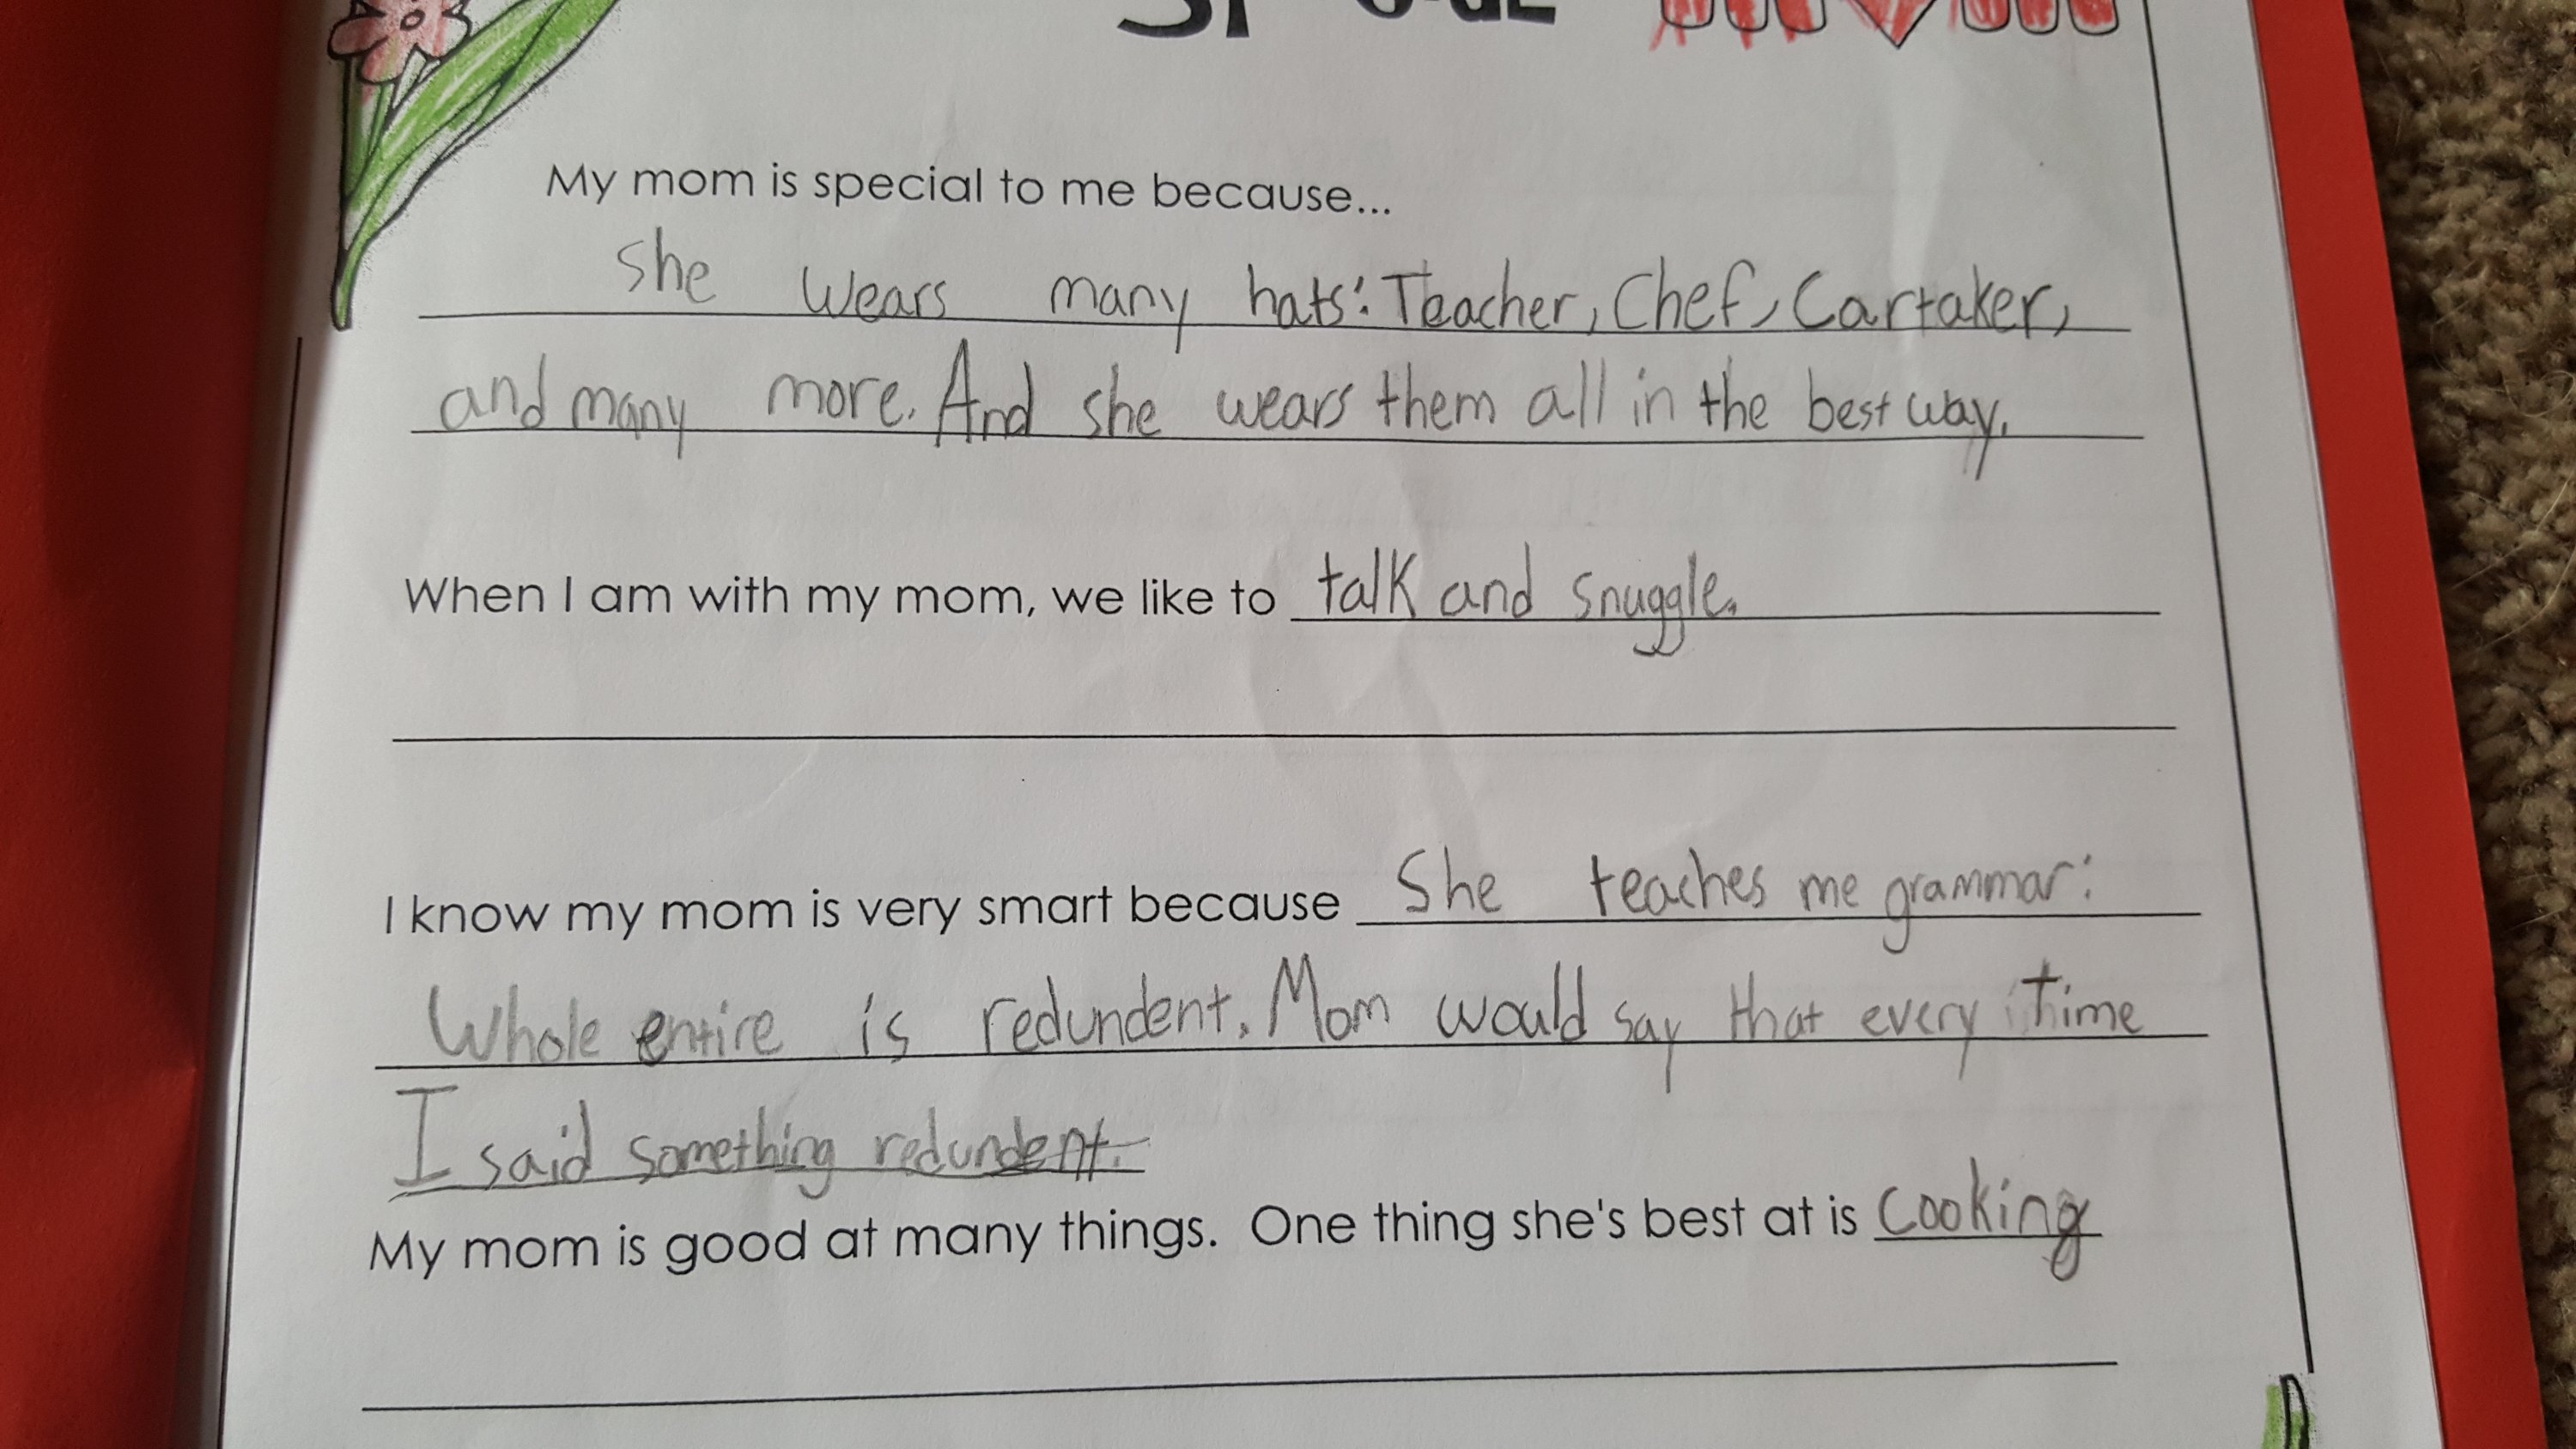 My mom is special to me because...
She wears many hats: Teacher, Chef, Cartaker,
and many more. And she wears them all in the best way.
When I am with my mom, we like to talk and snuggle.
I know my mom is very smart because She teaches me grammar:
Whole entire is redundent. Mom would say that every time
I said something redundent.
My mom is good at many things. One thing she's best at is cooking